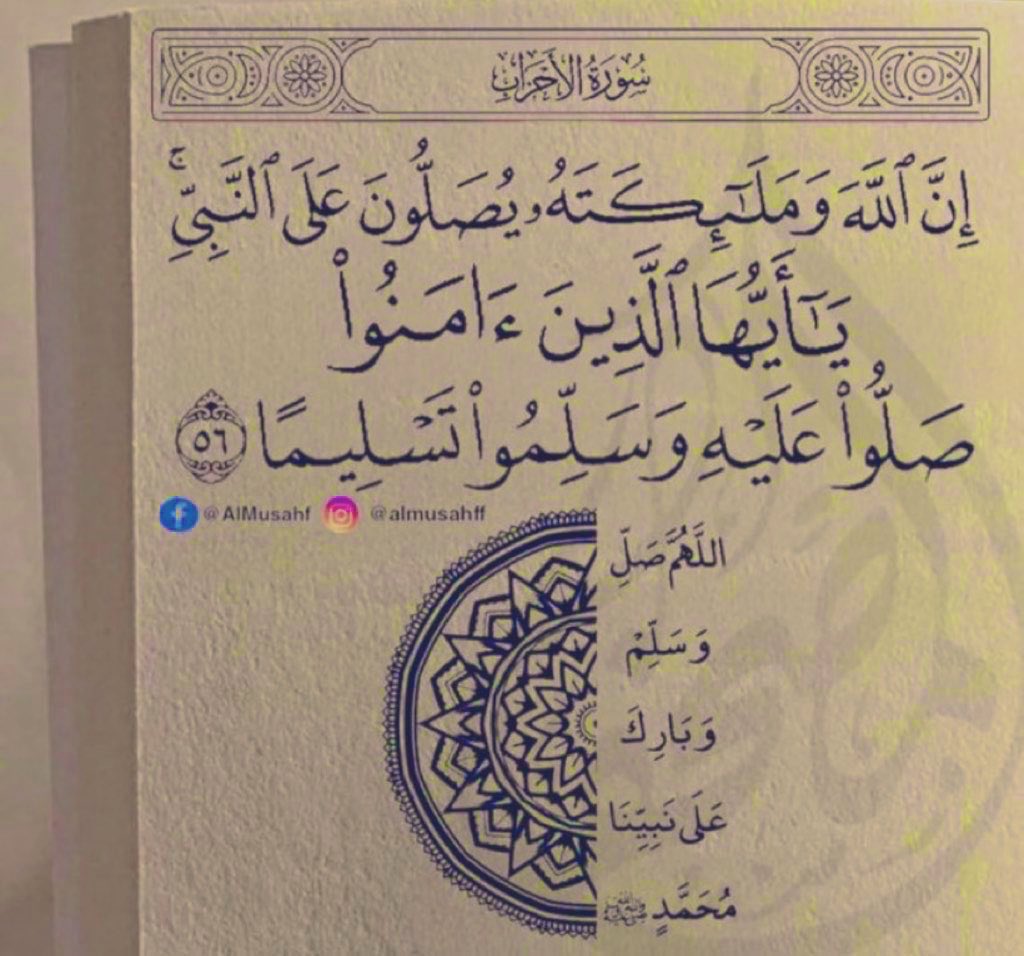 سُورَةُ الأَحْزَابِ
إِنَّ ٱللَّهَ وَمَلَـٰٓئِكَتَهُۥ يُصَلُّونَ عَلَى ٱلنَّبِىِّۚ
يَـٰٓأَيُّهَا ٱلَّذِينَ ءَامَنُوا۟
صَلُّوا۟ عَلَيْهِ وَسَلِّمُوا۟ تَسْلِيمًا ٥٦
@AlMusahf @almusahff
اللَّهُمَّ صَلِّ
وَسَلِّمْ
وَبَارِكَ
عَلَى نَبِيِّنَا
مُحَمَّدٍ ﷺ